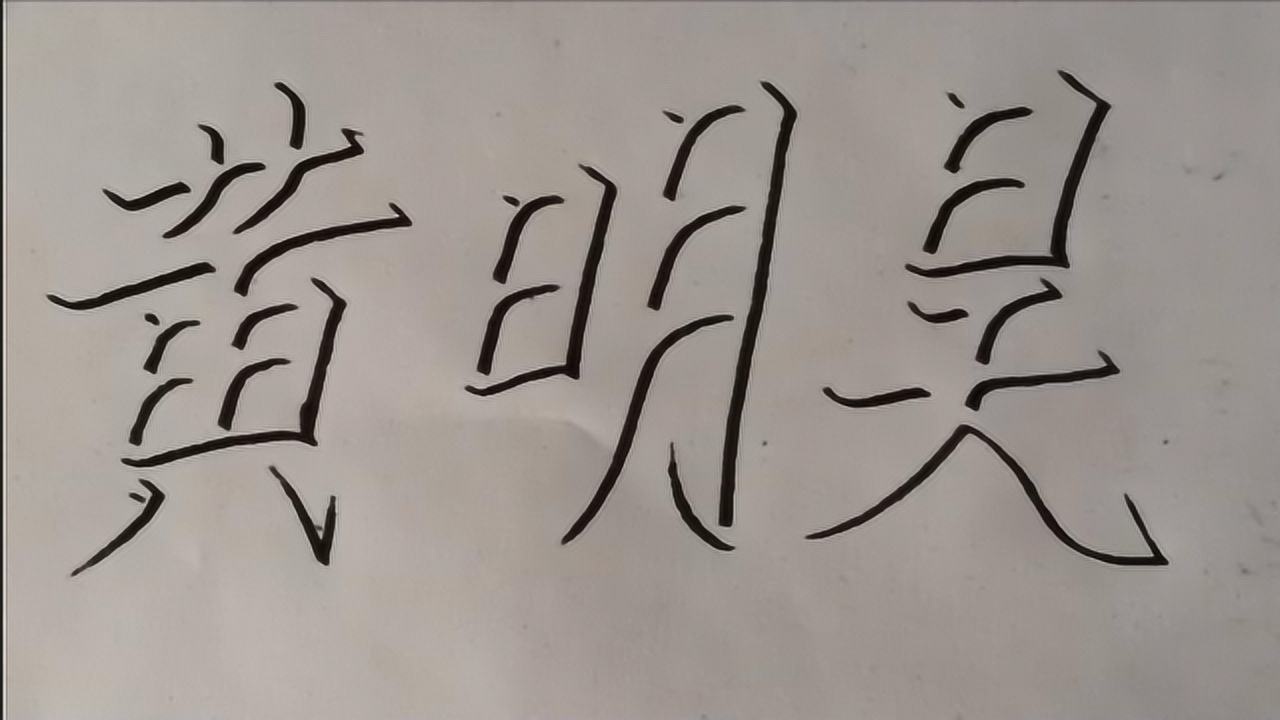 黄明昊